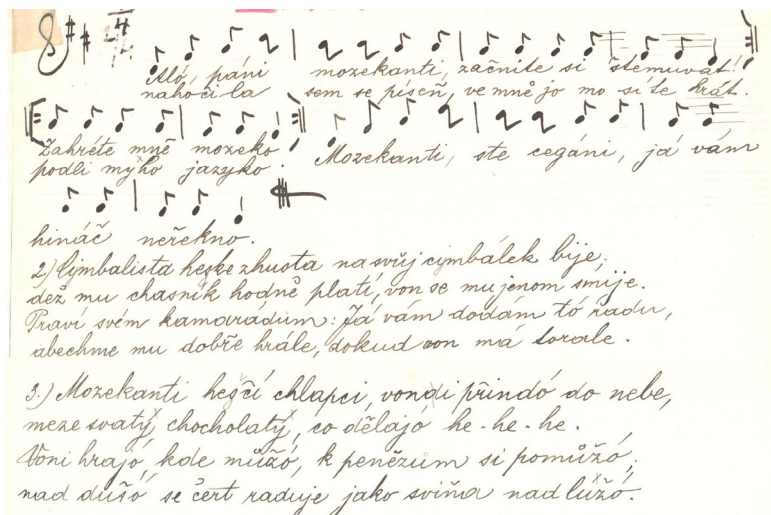 4
Aló, páni mozekanti, začnite si štemuvat!
nahočila sem se píseň, ve mně jo mo síte hrát.
Zahréte mně mozeko,
podli mýho jazyko. Mozekanti, ste cegáni, já vám
hináč neřekno.
2.) Cymbalista heske zhuota na svůj cymbálek bije,
dež mu chasník hodně platí, von se mu jenom směje.
Praví svém kamarádum: Já vám dodám tó radu,
abechme mu dobře hrále, dokud von má torale.
3.) Mozekanti heščí chlapci, vondi přindó do nebe,
meze svatý, chocholatý, co dělajó he-he-he.
Voni hrajó, kde můžó, k penězum si pomůžó,
nad dušó se čert raduje jako sviňa nad lúžó.